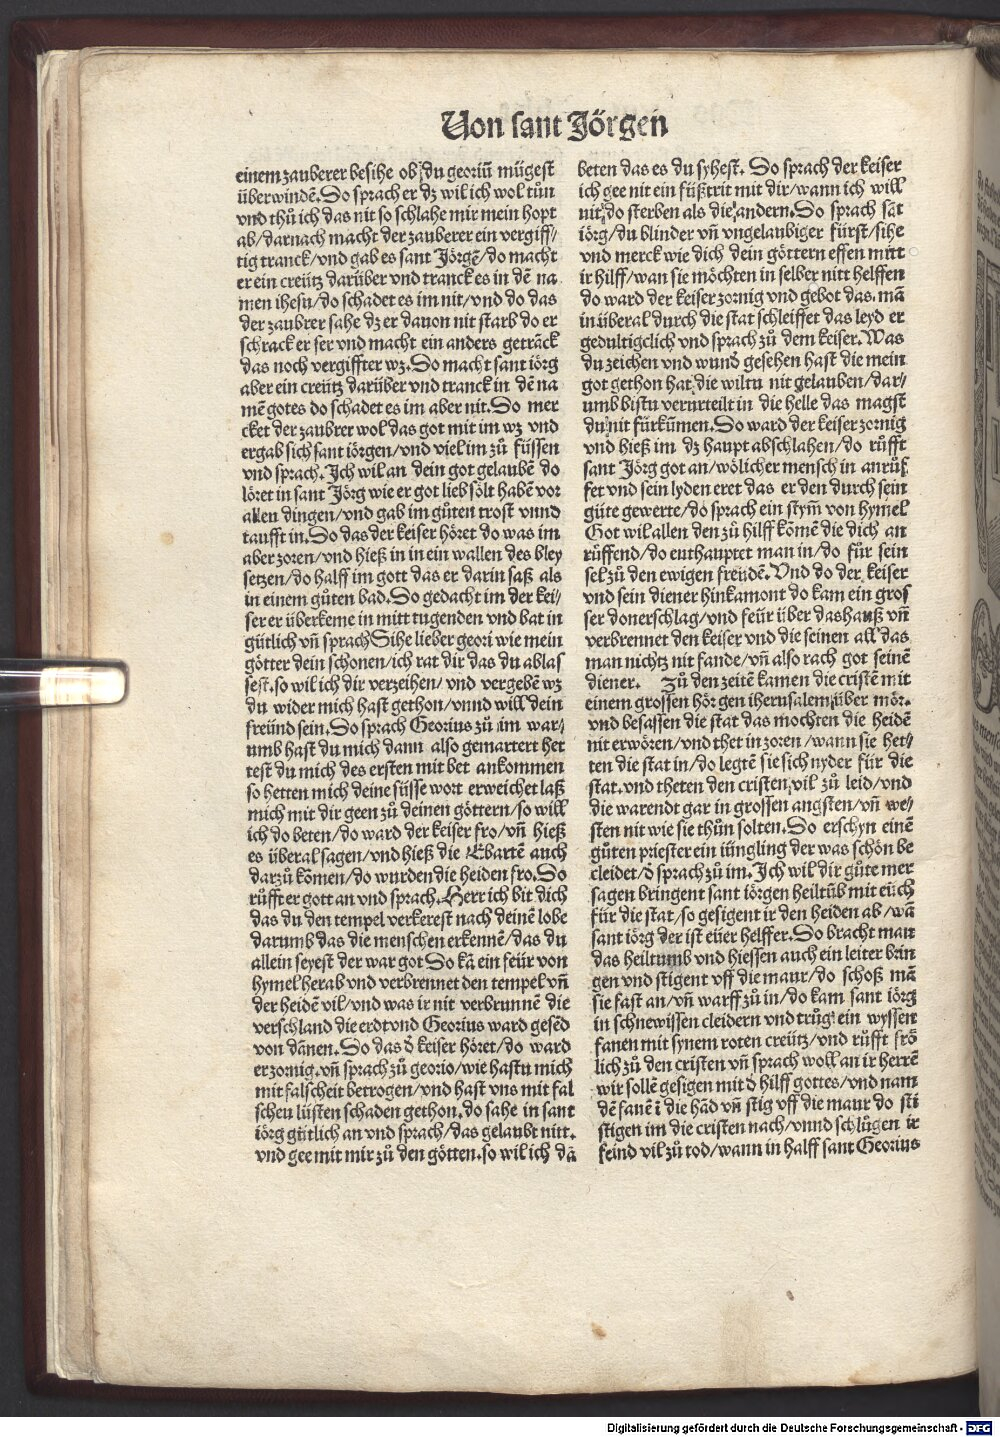 Von sant Jörgen
einem zauberer besihe ob du georiū mügest
überwindē. So sprach er dz wil ich wol tůn
vnd thů ich das nit so schlahe mir mein hopt
ab/darnach macht der zauberer ein vergiff/
tig tranck/vnd gab es sant Jörgē/do macht
er ein creütz darüber vnd tranck es in dē na
men ihesu/do schadet es im nit/vnd do das
der zaubrer sahe dz er dauon nit starb do er
schrack er ser vnd macht ein anders geträck
das noch vergiffter wz. So macht sant iörg
aber ein creütz darüber vnd tranck in dē na
mē gotes do schadet es im aber nit. So mer
cket der zaubrer wol das got mit im wz vnd
ergab sich sant iörgen/vnd viel im zů füssen
vnd sprach. Ich wil an dein got gelaubē do
löret in sant Jörg wie er got lieb sölt habē vor
allen dingen/vnd gab im gůten trost vnnd
taufft in. So das der keiser höret do was im
aber zoren/vnd hieß in in ein wallen des bley
setzen/do halff im gott das er darin saß als
in einem gůten bad. So gedacht im der kei/
ser er überkeme in mitt tugenden vnd bat in
gütlich vn̄ sprach Sihe lieber geori wie mein
götter dein schonen/ich rat dir das du ablas
sest. so wil ich dir verzeihen/ vnd vergebē wz
du wider mich hast gethon/vnnd will dein
freünd sein. So sprach Georius zů im war/
umb hast du mich dann also gemartert het
test du mich des ersten mit bet ankommen
so hetten mich deine süsse wort erweichet laß
mich mit dir geen zů deinen göttern/so will
ich do beten/do ward der keiser fro/vn̄ hieß
es überal sagen/vnd hieß die Ebartē auch
darzů kōmen/do wurden die heiden fro. So
růfft er gott an vnd sprach. Herr ich bit dich
das du den tempel verkerest nach deinē lobe
darumb das die menschen erkennē/das du
allein seyest der war got So kā ein feür von
hymel herab vnd verbrennet den tempel vn̄
der heidē vil/vnd was ir nit verbrunnē die
verschland die erdt vnd Georius ward gesēd
von dānen. So das d̄ keiser höret/do ward
er zornig. vn̄ sprach zů georio/wie hastu mich
mit falscheit betrogen/vnd hast vns mit fal
schen lüsten schaden gethon. do sahe in sant
iörg gütlich an vnd sprach/das gelaubt nitt.
vnd gee mit mir zů den götten. so wil ich dā
beten das es du syhest. So sprach der keiser
ich gee nit ein füßtrit mit dir/wann ich will
nit do sterben als die andern. So sprach sāt
iörg/du blinder vn̄ vngelaubiger fürst/sihe
vnd merck wie dich dein göttern effen mitt
ir hilff/wan sie möchten in selber nitt helffen
do ward der keiser zornig vnd gebot das mā
in überal durch die stat schleiffet das leyd er
gedultigclich vnd sprach zů dem keiser. Was
du zeichen vnd wund̄ gesehen hast die mein
got gethon hat die wiltu nit gelauben/dar/
umb bistu verurteilt in die helle das magst
du nit fürkümen. So ward der keiser zornig
vnd hieß im dz haupt abschlahen/do růfft
sant Jörg got an/wölicher mensch in anrůf
fet vnd sein lyden eret das er den durch sein
güte gewerte/do sprach ein stym̄ von hymel
Got wil allen den zů hilff kōmē die dich an
růffend/do enthauptet man in/do für sein
sel zů den ewigen freüdē. Vnd do der keiser
vnd sein diener hinkamont do kam ein gros
ser donerschlag/vnd feür über das hauß vn̄
verbrennet den keiser vnd die seinen all das
man nichtz nit fande/vn̄ also rach got seinē
diener. Zů den zeitē kamen die cristē mit
einem grossen hör gen iherusalem über mör.
vnd besassen die stat das mochten die heidē
nit erwören/vnd thet in zoren/wann sie het/
ten die stat in/do legtē sie sich nyder für die
stat. vnd theten den cristen vil zů leid/vnd
die warendt gar in grossen angsten/vn̄ we/
sten nit wie sie thůn solten. So erschyn einē
gůten priester ein iüngling der was schön be
cleidet/d̄ sprach zů im. Ich wil dir gůte mer
sagen bringent sant iörgen heiltūb mit eüch
für die stat/so gesigent ir den heiden ab/wā
sant iörg der ist eüer helffer. So bracht man
das heiltumb vnd hiessen auch ein leiter brin
gen vnd stigent vff die maur/do schoß mā
sie fast an/vn̄ warff zů in/do kam sant iörg
in schnewissen cleidern vnd trůg ein wyssen
fanen mit synem roten creütz/vnd růfft frö
lich zů den cristen vn̄ sprach woll an ir herrē
wir sollē gesigen mit d̄ hilff gottes/vnd nam
dē fanē ī die hād vn̄ stig vff die maur do sti
stigen im die cristen nach/vnnd schlügen ir
feind vil zů tod/wann in halff sant Georius
Digitalisierung gefördert durch die Deutsche Forschungsgemeinschaft - DFG